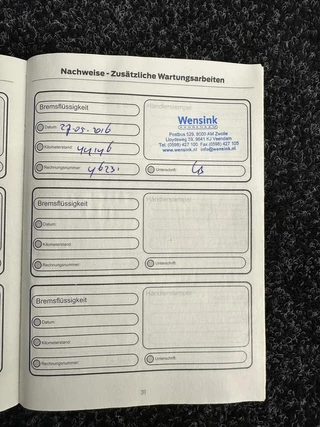 Nachweise - Zusätzliche Wartungsarbeiten
Bremsflüssigkeit
Händlerstempel
Datum: 27-05-2016
Kilometerstand:
Rechnungsnummer:
Wensink
Postbus 529, 8000 AM Zwolle
Lloydsweg 39, 9641 KJ Veendam
Tel. (0598) 427 100 Fax (0598) 427
www.wensink.nl info@wensink.nl
Unterschrift:
Bremsflüssigkeit
Händlerstempel
Datum:
Kilometerstand:
Rechnungsnummer:
Unterschrift:
Bremsflüssigkeit
Händlerstempel
Datum:
Kilometerstand:
Rechnungsnummer:
Unterschrift: